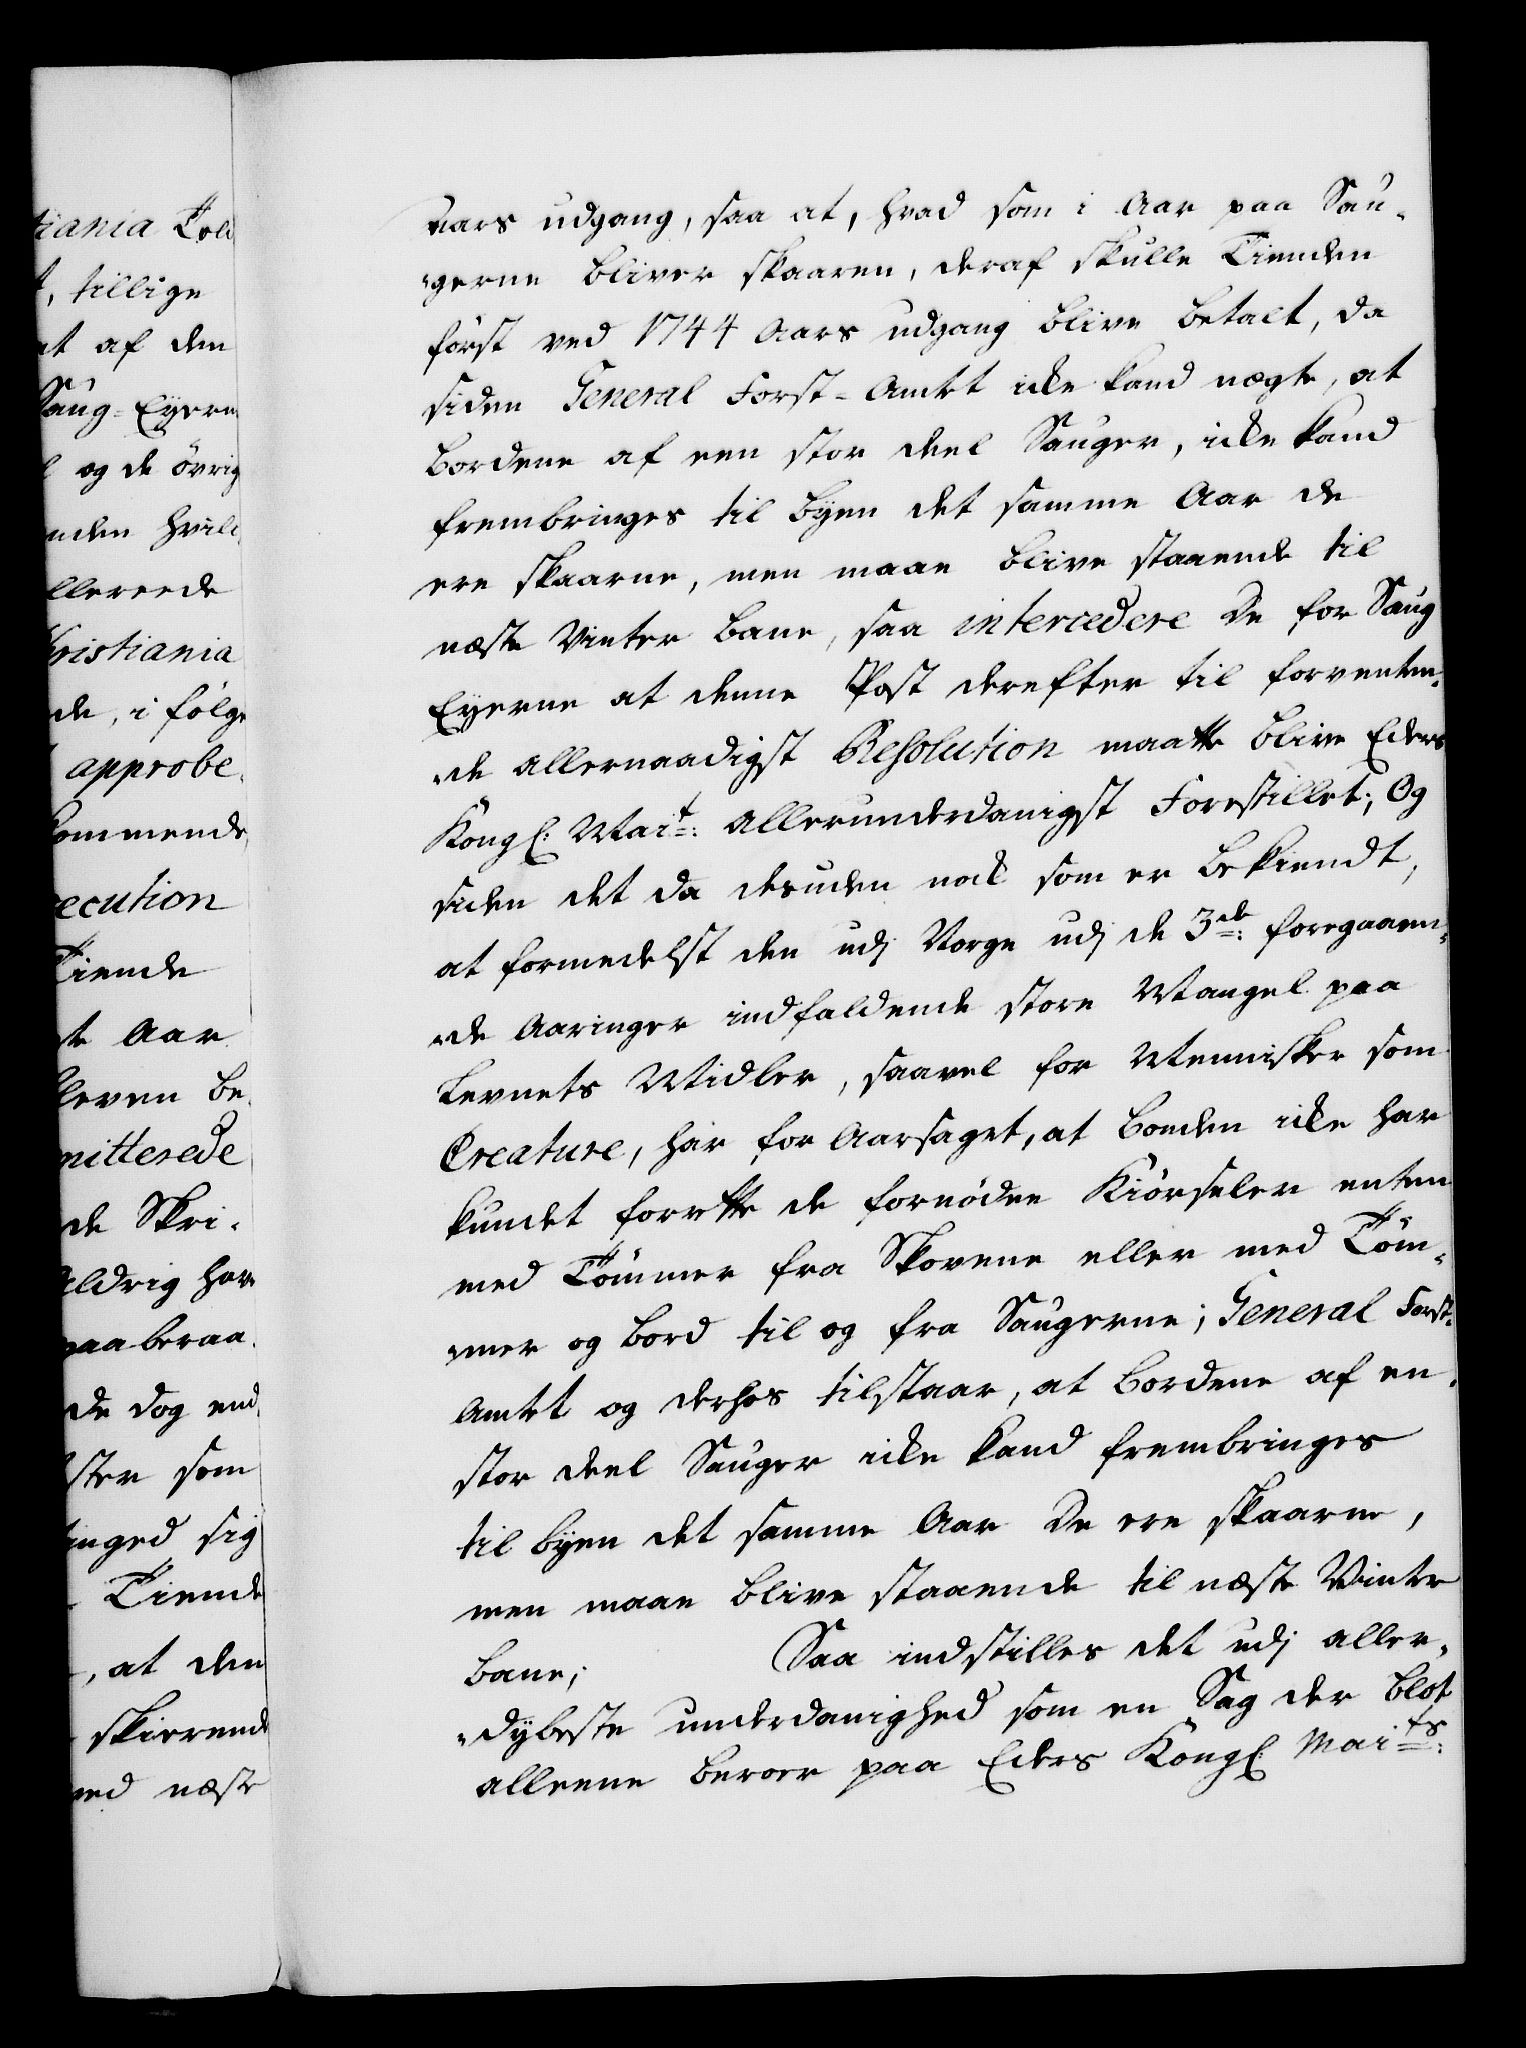 tiania Told
t, tillige
at af den
Saug-Eyern
l og de övrig
nden hvilc
llereede
hristiania
de, i fölge
approbe-
kommende
ecution
Tiende
te Aar
leven be-
mitterede
de Skri-
Aldrig har
paaberaa-
de dog end
ster som
inged sig
Tiende
, at den
skierende
med næste
Aars udgang, saa at, hvad som i Aar paa Sau-
gerne bliver skaaren, deraf skulle Tienden
först ved 1744 Aars udgang blive betalt, da
siden General Forst-Amtet icke kand nægte, at
Bordene af een stor deel Sauger, icke kand
frembringes til Byen det samme Aar de
ere skaarne, men maae blive staaende til
næste Vinter bane, saa intercedere De for Saug
Eyerne at denne Post derefter til forventen-
de allernaadigst Resolution maatte blive Eders
Kongl: Mait: allerunderdanigst Forestillet; Og
siden det da desuden nok som er bekiendt,
at formedelst den udj Norge udj de 3de: foregaaen-
de Aaringer indfaldende store Mangel paa
Levnets Midler, saavel for Mennisker som
Creature, har foraarsaget, at Bonden icke har
kundet forrette de fornödne Kiörseler enten
med Tömmer fra Skovene eller med Töm-
mer og Bord til og fra Saugerne; General Forst-
Amtet og derhos tilstaar, at Bordene af en
stor deel Sauger icke kand frembringes
til Byen det samme Aar De ere skaarne,
men maae blive staaende til næste Vinter
bane; Saa indstilles det udj aller-
dybeste underdanighed som en Sag der blot
alleene beroer paa Eders Kongl: Maits: